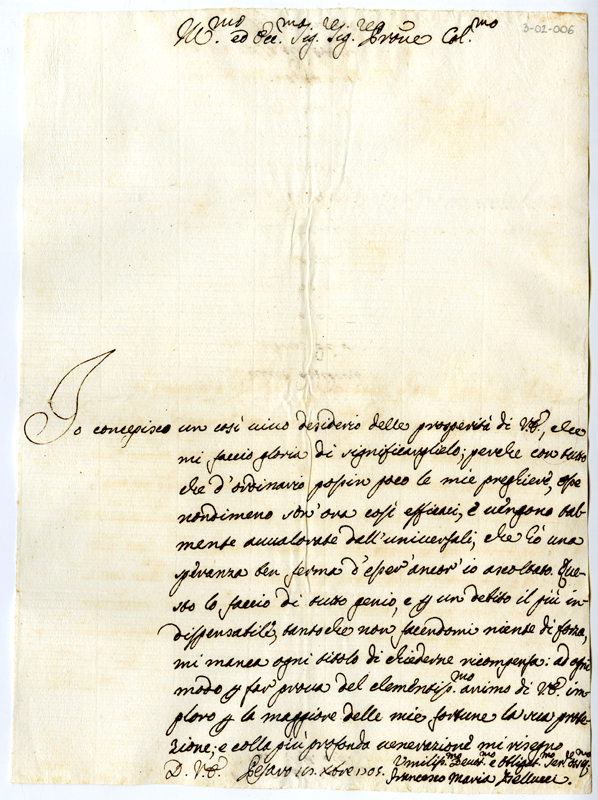 Ill.mo ed Ecc.mo Sig.re Sig.re Prone Col.mo
3-02-006
Io concepisco un così vivo desiderio delle prosperità di V.E., che
mi faccio gloria di significarglielo; perche con tutto
che d'ordinario possin poco le mie preghiere, esse
nondimeno son'ora così efficaci, e vengono tal-
mente avvalorate dall'universali, che hò una
speranza ben ferma d'esser'ancor'io ascoltato. Que-
sto lo faccio di tutto genio, e p un debito il più in-
dispensabile, tanto che non facendomi niente di forza,
mi manca ogni titolo di chiederne ricompensa: ad ogni
modo p far prova del clementiss.mo animo di V.E. im-
ploro p la maggiore delle mie fortune la sua prote-
zione; e colla più profonda venerazione mi rassegno
D. V.E. Pesaro Xbre 1705.
Umiliss.mo Devot.mo e Obligat.mo Ser.re Osseq.mo
Francesco Maria